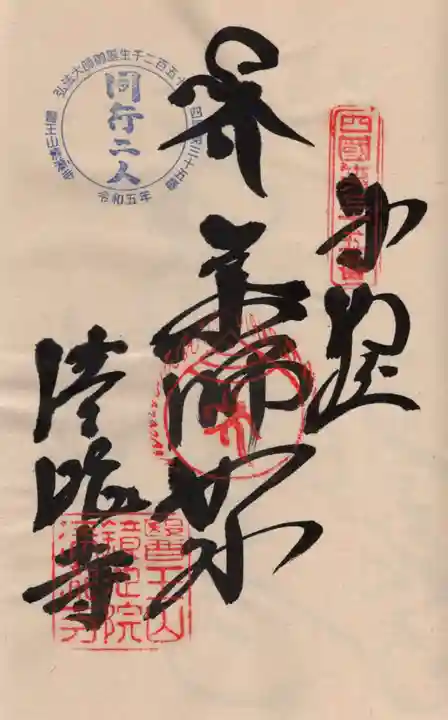 奉拝
薬師如来
清瀧寺
弘法大師御誕生千二百五十年
四国第三十五番
同行二人
醫王山清瀧寺
令和五年
四國第三十五番
醫王山
鏡池院
清瀧寺